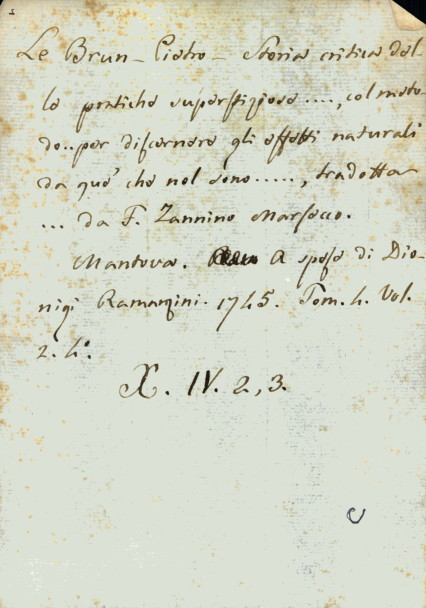 1
Le Brun - Pietro - Storia critica del-
le pratiche superstiziose ...., col meto-
do.. per discernere gli effetti naturali
da que' che nol sono ....., tradotta
... da F. Zannino Marsecco.
Mantova. A spese di Dio-
nigi Ramanzini. 1745. Tom. 4. Vol.
2. 4.º
X. IV. 2, 3.